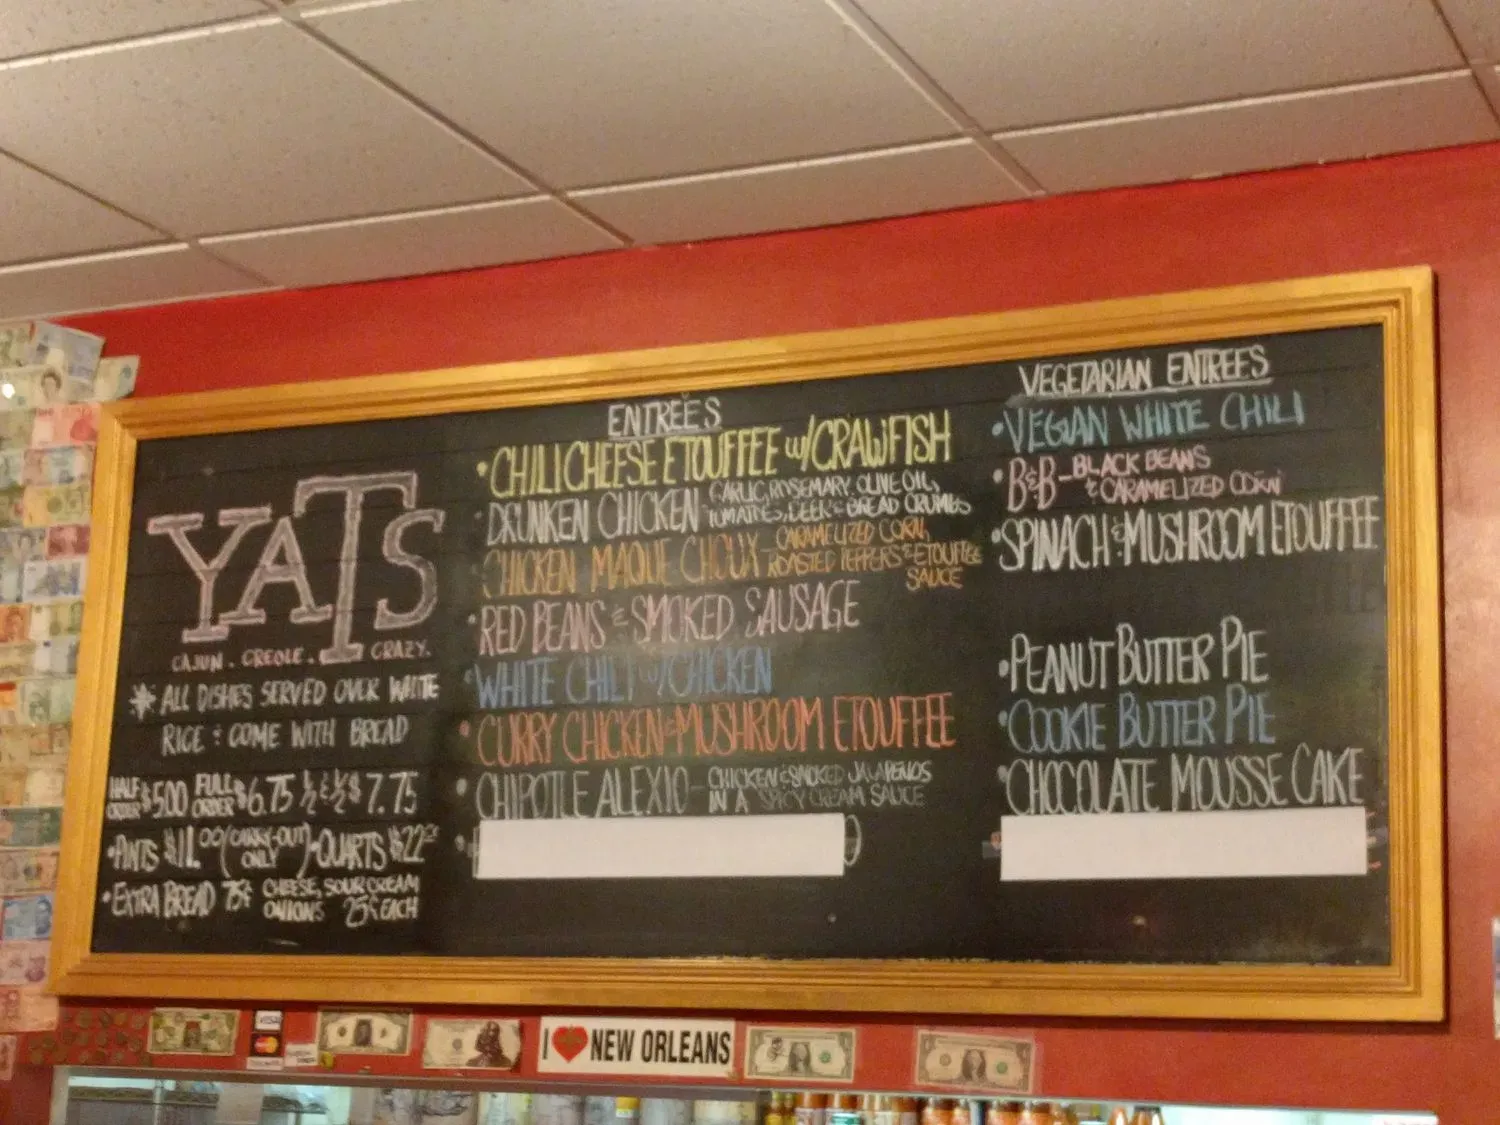 YATS
CAJUN. CREOLE. CRAZY.
* ALL DISHES SERVED OVER WHITE
RICE & COME WITH BREAD
HALF ORDER $5.00 FULL ORDER $6.75 ½ & ½ $7.75
•PINTS $11.00 (CARRY-OUT ONLY) •QUARTS $22
•EXTRA BREAD 75¢ CHEESE, SOUR CREAM
ONIONS 25¢ EACH
ENTREÉS
•CHILI CHEESE ETOUFFEE W/CRAWFISH
DRUNKEN CHICKEN GARLIC, ROSEMARY, OLIVE OIL,
TOMATOES, BEER & BREAD CRUMBS
CHICKEN MAQUE CHOUX - CARAMELIZED CORN,
ROASTED PEPPERS & ETOUFFEE
SAUCE
•RED BEANS & SMOKED SAUSAGE
•WHITE CHILI W/CHICKEN
•CURRY CHICKEN & MUSHROOM ETOUFFEE
•CHIPOTLE ALEXIO - CHICKEN & SMOKED JALAPENOS
IN A SPICY CREAM SAUCE
VEGETARIAN ENTREES
•VEGAN WHITE CHILI
•B&B - BLACK BEANS
& CARAMELIZED CORN
•SPINACH & MUSHROOM ETOUFFEE
•PEANUT BUTTER PIE
•COOKIE BUTTER PIE
•CHOCOLATE MOUSSE CAKE
VISA
MasterCard
I ❤ NEW ORLEANS